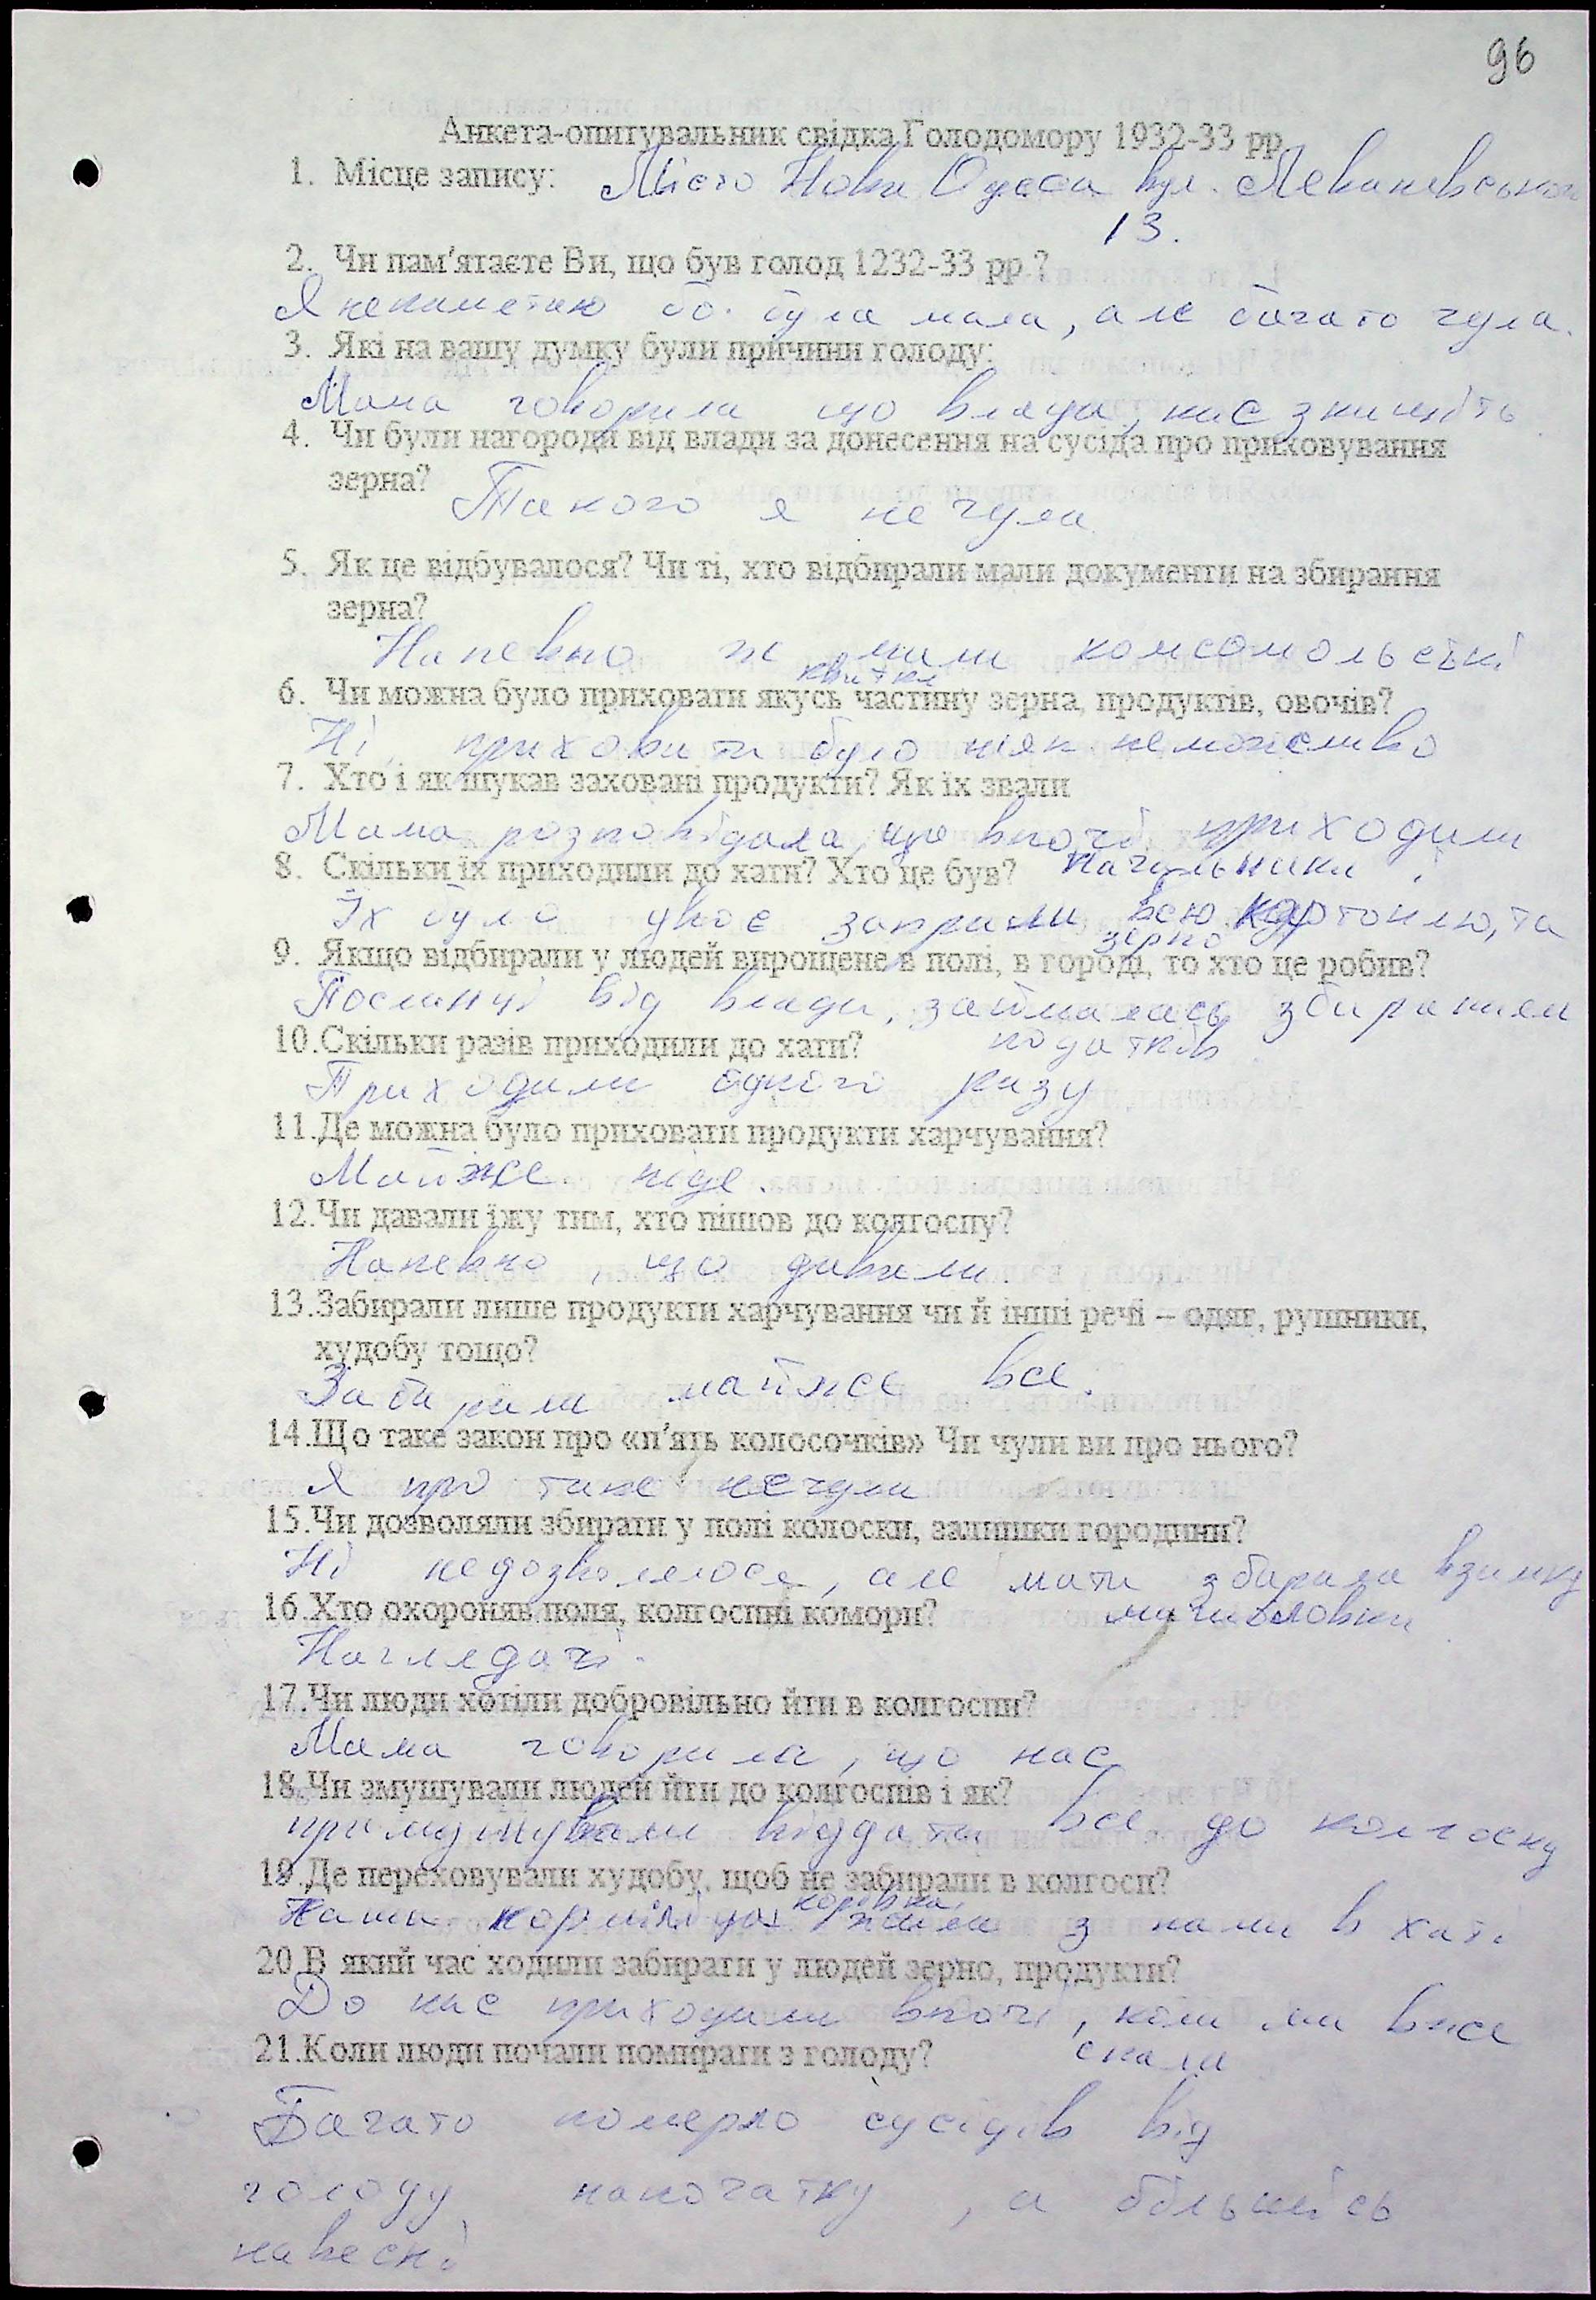 96
Анкета-опитувальник свідка Голодомору 1932-33 рр.
1. Місце запису: Місто Нова Одеса вул. Леваневського
13.
2. Чи пам'ятаєте Ви, що був голод 1232-33 рр.?
Я непаметаю бо була мала, але багато чула.
3. Які на вашу думку були причини голоду:
Мама говорила що влада, нас знищіть
4. Чи були нагороди від влади за донесення на сусіда про приховування
зерна? Такого я не чула
5. Як це відбувалося? Чи ті, хто відбирали мали документи на збирання
зерна?
Напевно ж мали комсомольські
квитки
6. Чи можна було приховати якусь частину зерна, продуктів, овочів?
Ні, приховати було ніяк неможливо
7. Хто і як шукав заховані продукти? Як їх звали
Мама розповідала, що вночі приходили
8. Скільки їх приходили до хати? Хто це був? начальники
Їх було двоє забрали всю картоплю, та
зерно
9. Якщо відбирали у людей вирощене в полі, в городі, то хто це робив?
Посланці від влади, займалась збиранням
податків
10.Скільки разів приходили до хати?
Приходили одного разу
11.Де можна було приховати продукти харчування?
Майже ніде.
12.Чи давали їжу тим, хто пішов до колгоспу?
Напевно, що давали.
13.Забирали лише продукти харчування чи й інші речі – одяг, рушники,
худобу тощо?
Забирали майже все.
14.Що таке закон про «п'ять колосочків» Чи чули ви про нього?
Я про таке нечула
15.Чи дозволяли збирати у полі колоски, залишки городини?
Ні недозволялося, але мати збирала взимку
16.Хто охороняв поля, колгоспні комори?
Наглядачі.
17.Чи люди хотіли добровільно йти в колгоспи?
Мама говорила, що нас
18.Чи змушували людей йти до колгоспів і як?
примушували віддати все до колгоспу
19.Де переховували худобу, щоб не забирали в колгосп?
Наша корміліца корівка, жила з нами в хаті
20.В який час ходили забирати у людей зерно, продукти?
До нас приходили вночі, коли ми вже
спали
21.Коли люди почали помирати з голоду?
Багато померло сусідів від
голоду напочатку, а більшість
навесні